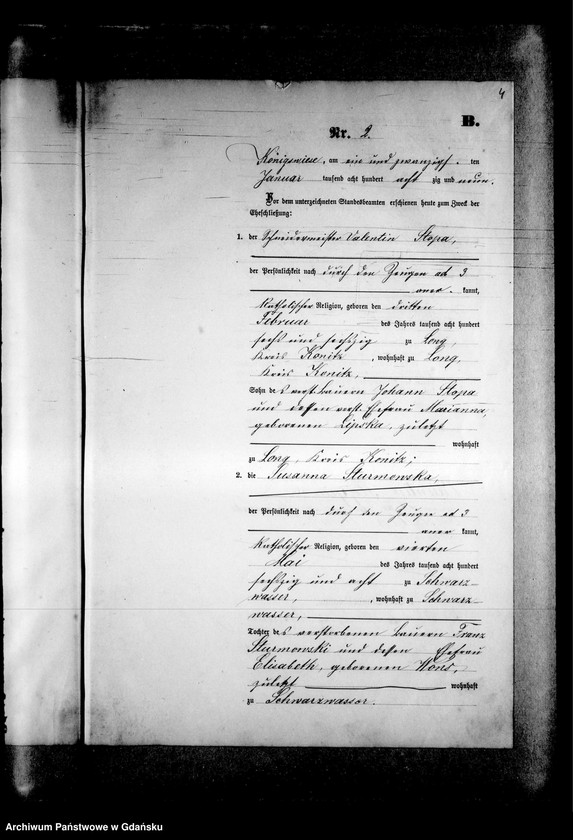 4
B.
Nr. 2.
Königswiese, am ein und zwanzigsten
Januar tausend acht hundert acht zig und neun.
Vor dem unterzeichneten Standesbeamten erschienen heute zum Zweck der
Eheschließung:
1. der Schneidermeister Valentin Stopa,
der Persönlichkeit nach durch den Zeugen ad 3
aner kannt,
katholischer Religion, geboren den dritten
Februar des Jahres tausend acht hundert
sechs und sechszig zu Long,
Kreis Konitz, wohnhaft zu Long,
Kreis Konitz,
Sohn des verst. Bauern Johann Stopa
und dessen verst. Ehefrau Marianna,
geborenen Lipska, zuletzt
wohnhaft
zu Long, Kreis Konitz;
2. die Susanna Sturmowska,
der Persönlichkeit nach durch den Zeugen ad 3
aner kannt,
katholischer Religion, geboren den vierten
Mai des Jahres tausend acht hundert
sechszig und acht zu Schwarz-
wasser, wohnhaft zu Schwarz-
wasser,
Tochter des verstorbenen Bauern Franz
Sturmowski und dessen Ehefrau
Elisabeth, geborenen Wons,
zuletzt wohnhaft
zu Schwarzwasser.
Archiwum Państwowe w Gdańsku